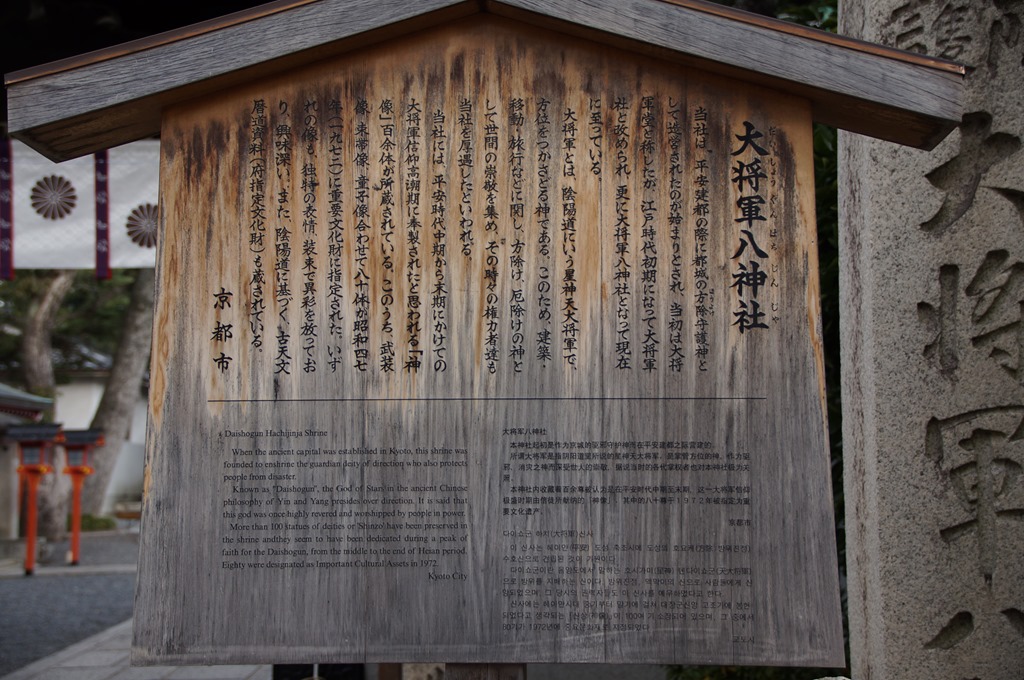 大将軍八神社
だいしょうぐんはちじんじゃ
当社は、平安建都の際に都城の方除守護神と
して造営されたのが始まりとされ、当初は大将
軍堂と称したが、江戸時代初期になって大将軍
社と改められ、更に大将軍八神社となって現在
に至っている。
大将軍とは、陰陽道にいう星神天大将軍で、
方位をつかさどる神である。このため、建築・
移動・旅行などに関し、方除け、厄除けの神と
して世間の崇敬を集め、その時々の権力者達も
当社を厚遇したといわれる。
当社には、平安時代中期から末期にかけての
大将軍信仰高潮期に奉製されたと思われる「神
像」百余体が所蔵されている。このうち、武装
像・束帯像・童子像合わせて八十体が昭和四七
年(一九七二)に重要文化財に指定された。いず
れの像も、独特の表情、装束で異彩を放ってお
り、興味深い。また、陰陽道に基づく、古天文
暦道資料(府指定文化財)も蔵されている。
京都市
Daishogun Hachijinja Shrine
When the ancient capital was established in Kyoto, this shrine was
founded to enshrine the guardian deity of direction who also protects
people from disaster.
Known as "Daishogun", the God of Stars in the ancient Chinese
philosophy of Yin and Yang presides over direction. It is said that
this god was once highly revered and worshipped by people in power.
More than 100 statues of deities or 'Shinzo' have been preserved in
the shrine andthey seem to have been dedicated during a peak of
faith for the Daishogun, from the middle to the end of Heian period.
Eighty were designated as Important Cultural Assets in 1972.
Kyoto City
大将军八神社
本神社起初是作为京城的驱邪守护神而在平安建都之际营建的。
所谓大将军是指阴阳道里所说的星神天大将军，是掌管方位的神。作为驱
邪、消灾之神而深受世人的崇敬。据说当时的各代掌权者也对本神社极为关
照。
本神社内收藏着百余尊被认为是在平安时代中期至末期，这一大将军信仰
极盛时期由信徒所献纳的「神像」。其中的八十尊于1972年被指定为重
要文化遗产。
京都市
다이쇼군 하치(大将軍)신사
이 신사는 헤이안(平安) 도성 축조시에 도성의 호요케(方除: 방위진정)
수호신으로 건립된 것이 기원이다.
교토시
大将軍八